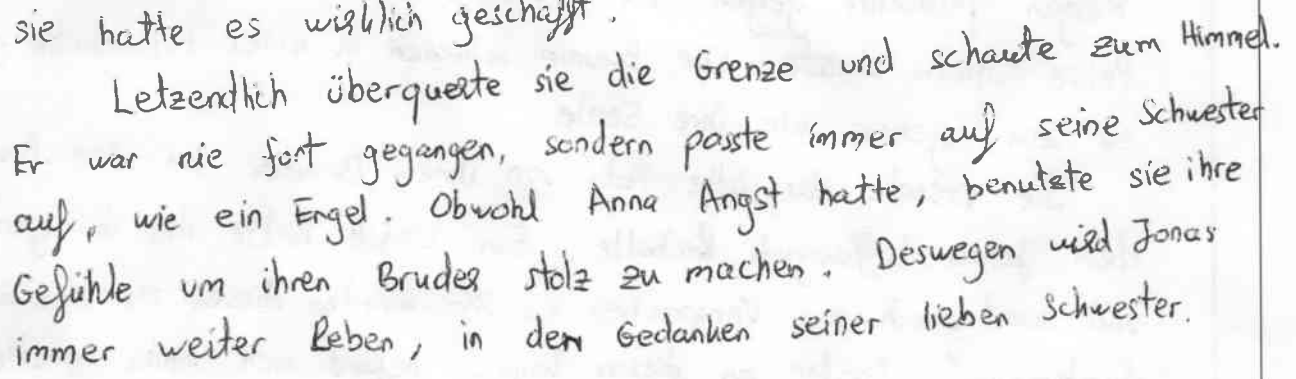 sie hatte es wirklich geschafft.
Letzendlich überquerte sie die Grenze und schaute zum Himmel.
Er war nie fort gegangen, sondern passte immer auf seine Schwester
auf, wie ein Engel. Obwohl Anna Angst hatte, benutzte sie ihre
Gefühle um ihren Bruder stolz zu machen. Deswegen wird Jonas
immer weiter leben, in den Gedanken seiner lieben Schwester.